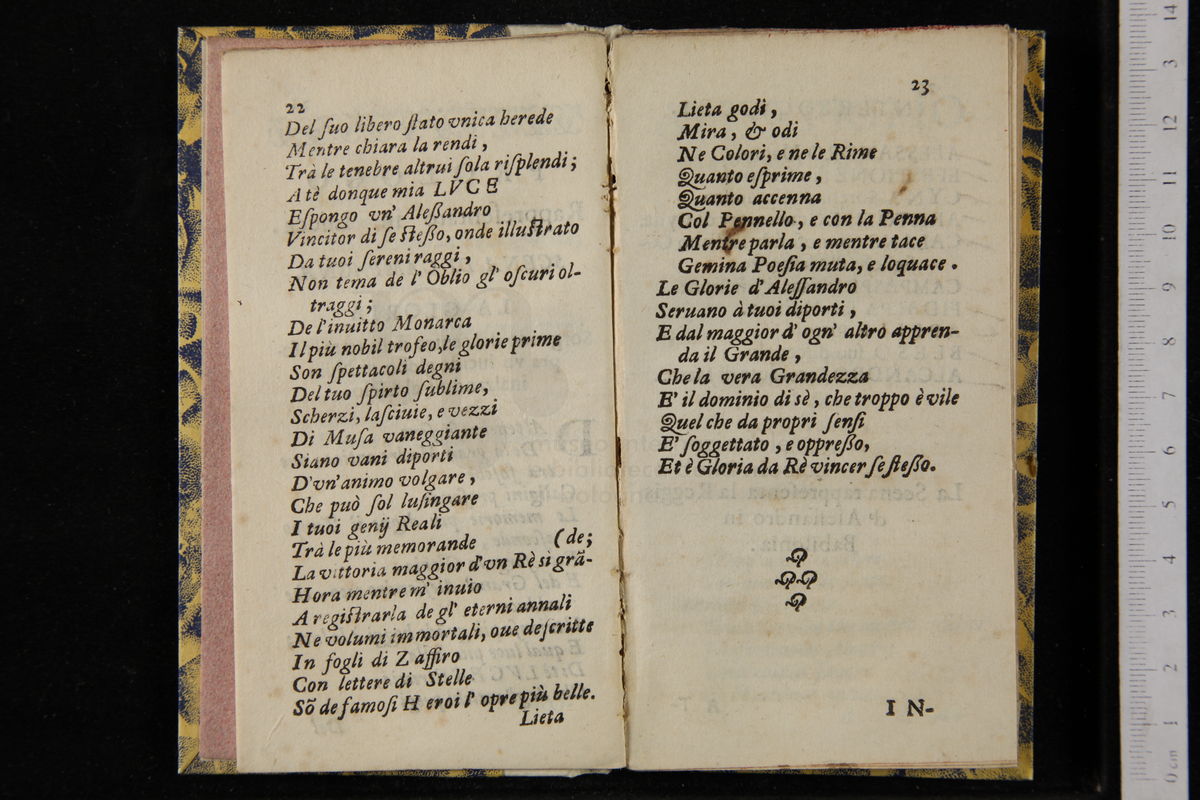 22
Del ſuo libero ſtato vnica herede
Mentre chiara la rendi,
Trà le tenebre altrui ſola riſplendi;
A tè donque mia LVCE
Eſpongo vn' Aleßandro
Vincitor di ſe ſteßo, onde illuſtrato
Da tuoi ſereni raggi,
Non tema de l' Oblio gl' oſcuri ol-
traggi;
De l'inuitto Monarca
Il più nobil trofeo, le glorie prime
Son ſpettacoli degni
Del tuo ſpirto ſublime,
Scherzi, laſciuie, e vezzi
Di Muſa vaneggiante
Siano vani diporti
D'vn'animo volgare,
Che può ſol luſingare
I tuoi genij Reali
Trà le più memorande (de;
La vittoria maggior d'vn Rè sì grã-
Hora mentre m' inuio
A regiſtrarla de gl' eterni annali
Ne volumi immortali, oue deſcritte
In fogli di Zaffiro
Con lettere di Stelle
Sõ de famoſi Heroi l' opre più belle.
Lieta
23
Lieta godi,
Mira, & odi
Ne Colori, e ne le Rime
Quanto eſprime,
Quanto accenna
Col Pennello, e con la Penna
Mentre parla, e mentre tace
Gemina Poeſia muta, e loquace.
Le Glorie d'Aleſſandro
Seruano à tuoi diporti,
E dal maggior d' ogn' altro appren-
da il Grande,
Che la vera Grandezza
E' il dominio di sè, che troppo è vile
Quel che da propri ſenſi
E' ſoggettato, e oppreßo,
Et è Gloria da Rè vincer ſe ſteßo.
IN-
0 cm 1 2 3 4 5 6 7 8 9 10 11 12 3 14